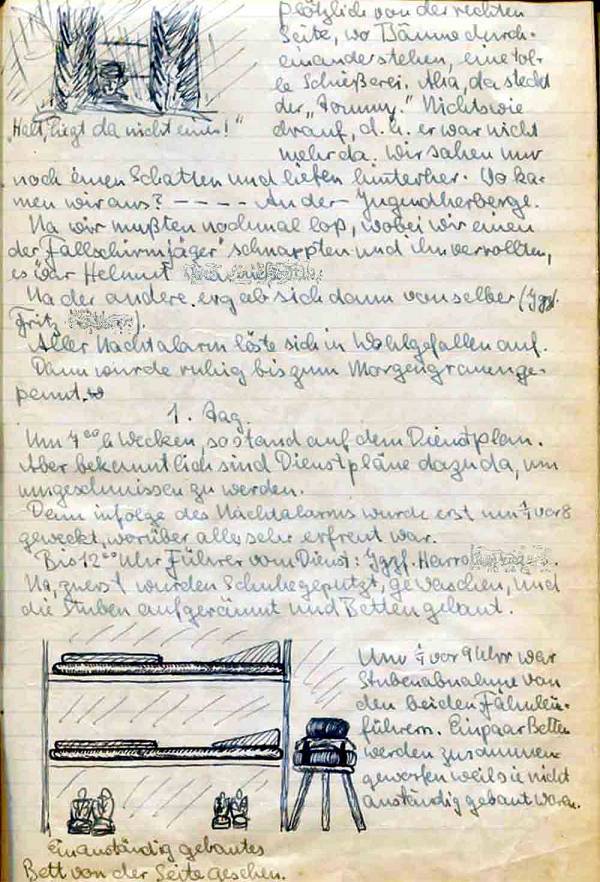 plötzlich von der rechten
Seite, wo Bäume durch-
einander stehen, eine tol-
le Schießerei. Aha, da steckt
der „Tommy.“ Nichts wie
drauf, d.h. er war nicht
mehr da. Wir sahen nur
„Halt, liegt da nicht einer!“
noch einen Schatten und liefen hinterher. Wo ka-
men wir aus? – – – – An der Jugendherberge.
Na wir mußten nochmal los, wobei wir einen
der „Fallschirmjäger“ schnappten und ihn verrollten,
es war Helmut
Na der andere ergab sich dann von selber (Jgzf.
Fritz ).
Aller Nachtalarm löste sich in Wohlgefallen auf.
Dann wurde ruhig bis zum Morgengrauen ge-
pennt.
1. Tag.
Um 7 00 h Wecken, so stand auf dem Dienstplan.
Aber bekanntlich sind Dienstpläne dazu da, um
umgeschmissen zu werden.
Denn infolge des Nachtalarms wurde erst um 1/4 vor 8
geweckt, worüber alles sehr erfreut war.
Bis 12 00 Uhr Führer vom Dienst: Jgzf. Harro
Na, zuerst wurden Schuhe geputzt, gewaschen, und
die Stuben aufgeräumt und Betten gebaut.
Um 1/4 vor 9 Uhr war
Stubenabnahme von
den beiden Fähnlein-
führern. Ein paar Betten
werden zusammen
geworfen weil sie nicht
anständig gebaut waren.
Ein anständig gebautes
Bett von der Seite gesehen.